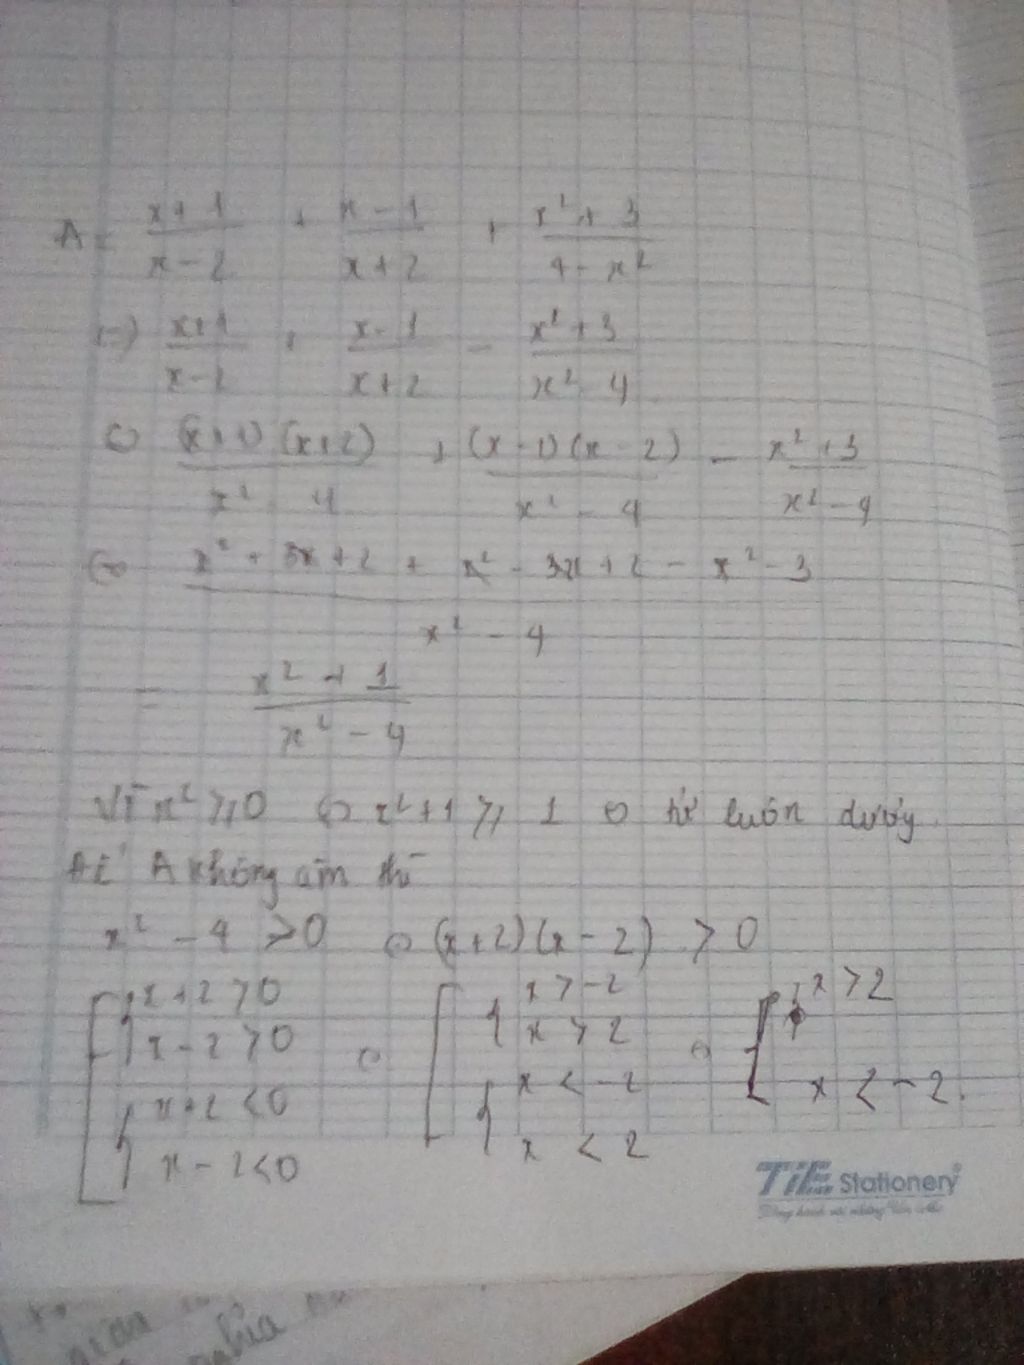 A = \frac{x+1}{x-2} + \frac{x-1}{x+2} + \frac{x²+3}{4-x²}
\frac{x+1}{x-2} + \frac{x-1}{x+2} - \frac{x²+3}{x²-4}
⇔ \frac{(x+1)(x+2)}{x²-4} + \frac{(x-1)(x-2)}{x²-4} - \frac{x²+3}{x²-4}
⇔ \frac{x²+3x+2+x²-3x+2-x²-3}{x²-4}
= \frac{x²+1}{x²-4}
Vì x² ≥ 0 ⇔ x²+1 ≥ 1 ⇔ tử luôn dương
Để A không âm thì
x² - 4 > 0 ⇔ (x+2)(x-2) > 0
[ { x+2 > 0 ⇔ [ { x > -2 ⇔ [ x > 2
x-2 > 0 x > 2
{ x+2 < 0 { x < -2 x < -2.
x-2 < 0 x < 2
TiE Stationery